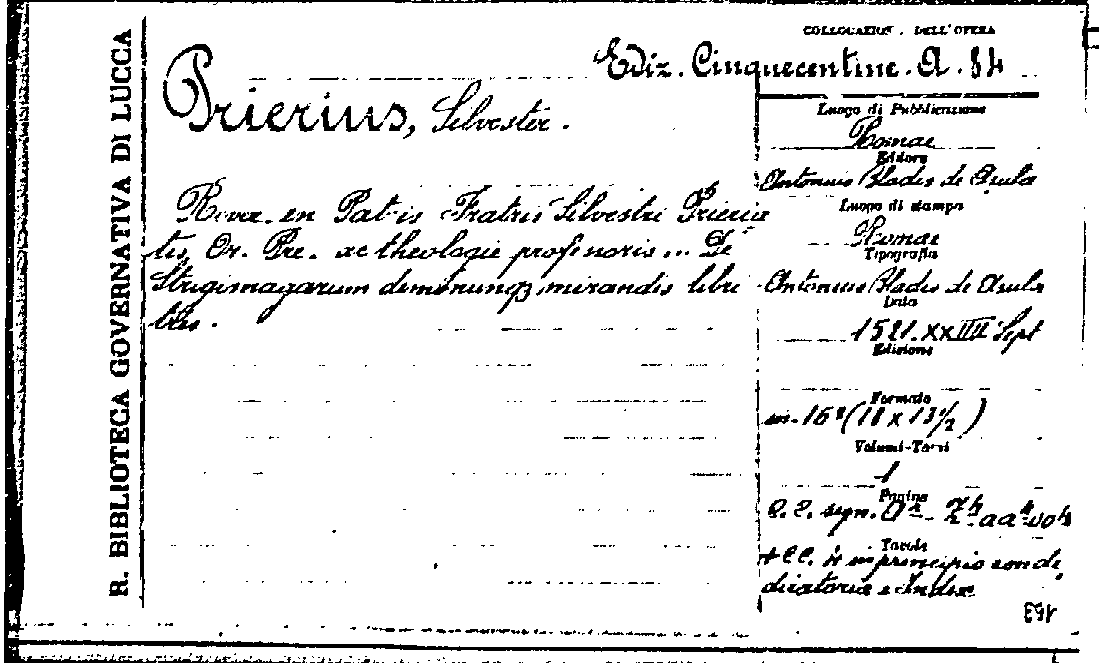 R. BIBLIOTECA GOVERNATIVA DI LUCCA
COLLOCAZIONE DELL'OPERA
Ediz. Cinquecentine. A. 84
Prierius, Silvester.
Rever. en Patris Fratris Silvestri Prieria
tis, Or. Pre. ac theologie professoris ... De
Strigimagarum demonunq3 mirandis libri
tres.
Luogo di Pubblicazione
Romae
Editore
Antonius Blades de Asula
Luogo di stampa
Romae
Tipografia
Antonius Blades de Asula
Data
1521. XXIIII Sept
Edizione
Formato
in-16° (18 x 13 1/2)
Volumi-Tomi
1
Pagine
sign.
Tavole
+ CC. 4 in principio con de
dicatoria e Index
153